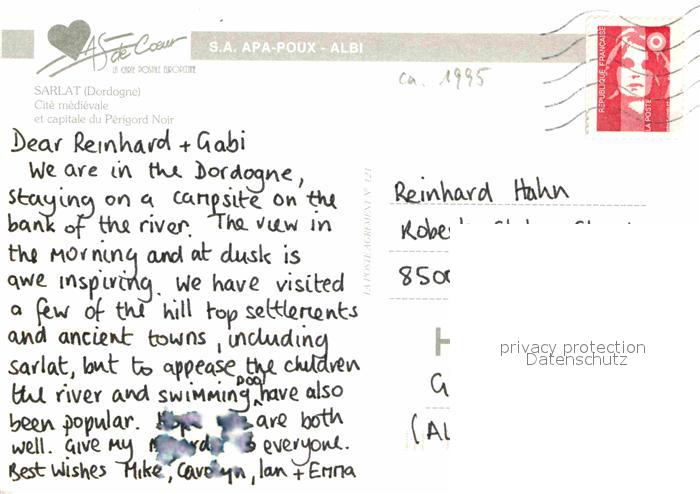 AS de Cœur
LA CARTE POSTALE EUROPEENNE
S.A. APA-POUX - ALBI
ca. 1995
REPUBLIQUE FRANÇAISE
LA POSTE
SARLAT (Dordogne)
Cité médiévale
et capitale du Périgord Noir
Dear Reinhard + Gabi
We are in the Dordogne,
staying on a campsite on the
bank of the river. The view in
the morning and at dusk is
awe inspiring. We have visited
a few of the hill top settlements
and ancient towns, including
sarlat, but to appease the children
the river and swimming POOL have also
been popular. are both
well. Give my everyone.
Best Wishes Mike, Carolyn, Ian + Emma
LA POSTE AGREMENT N° 121
Reinhard Hahn
850
H
G
privacy protection
Datenschutz